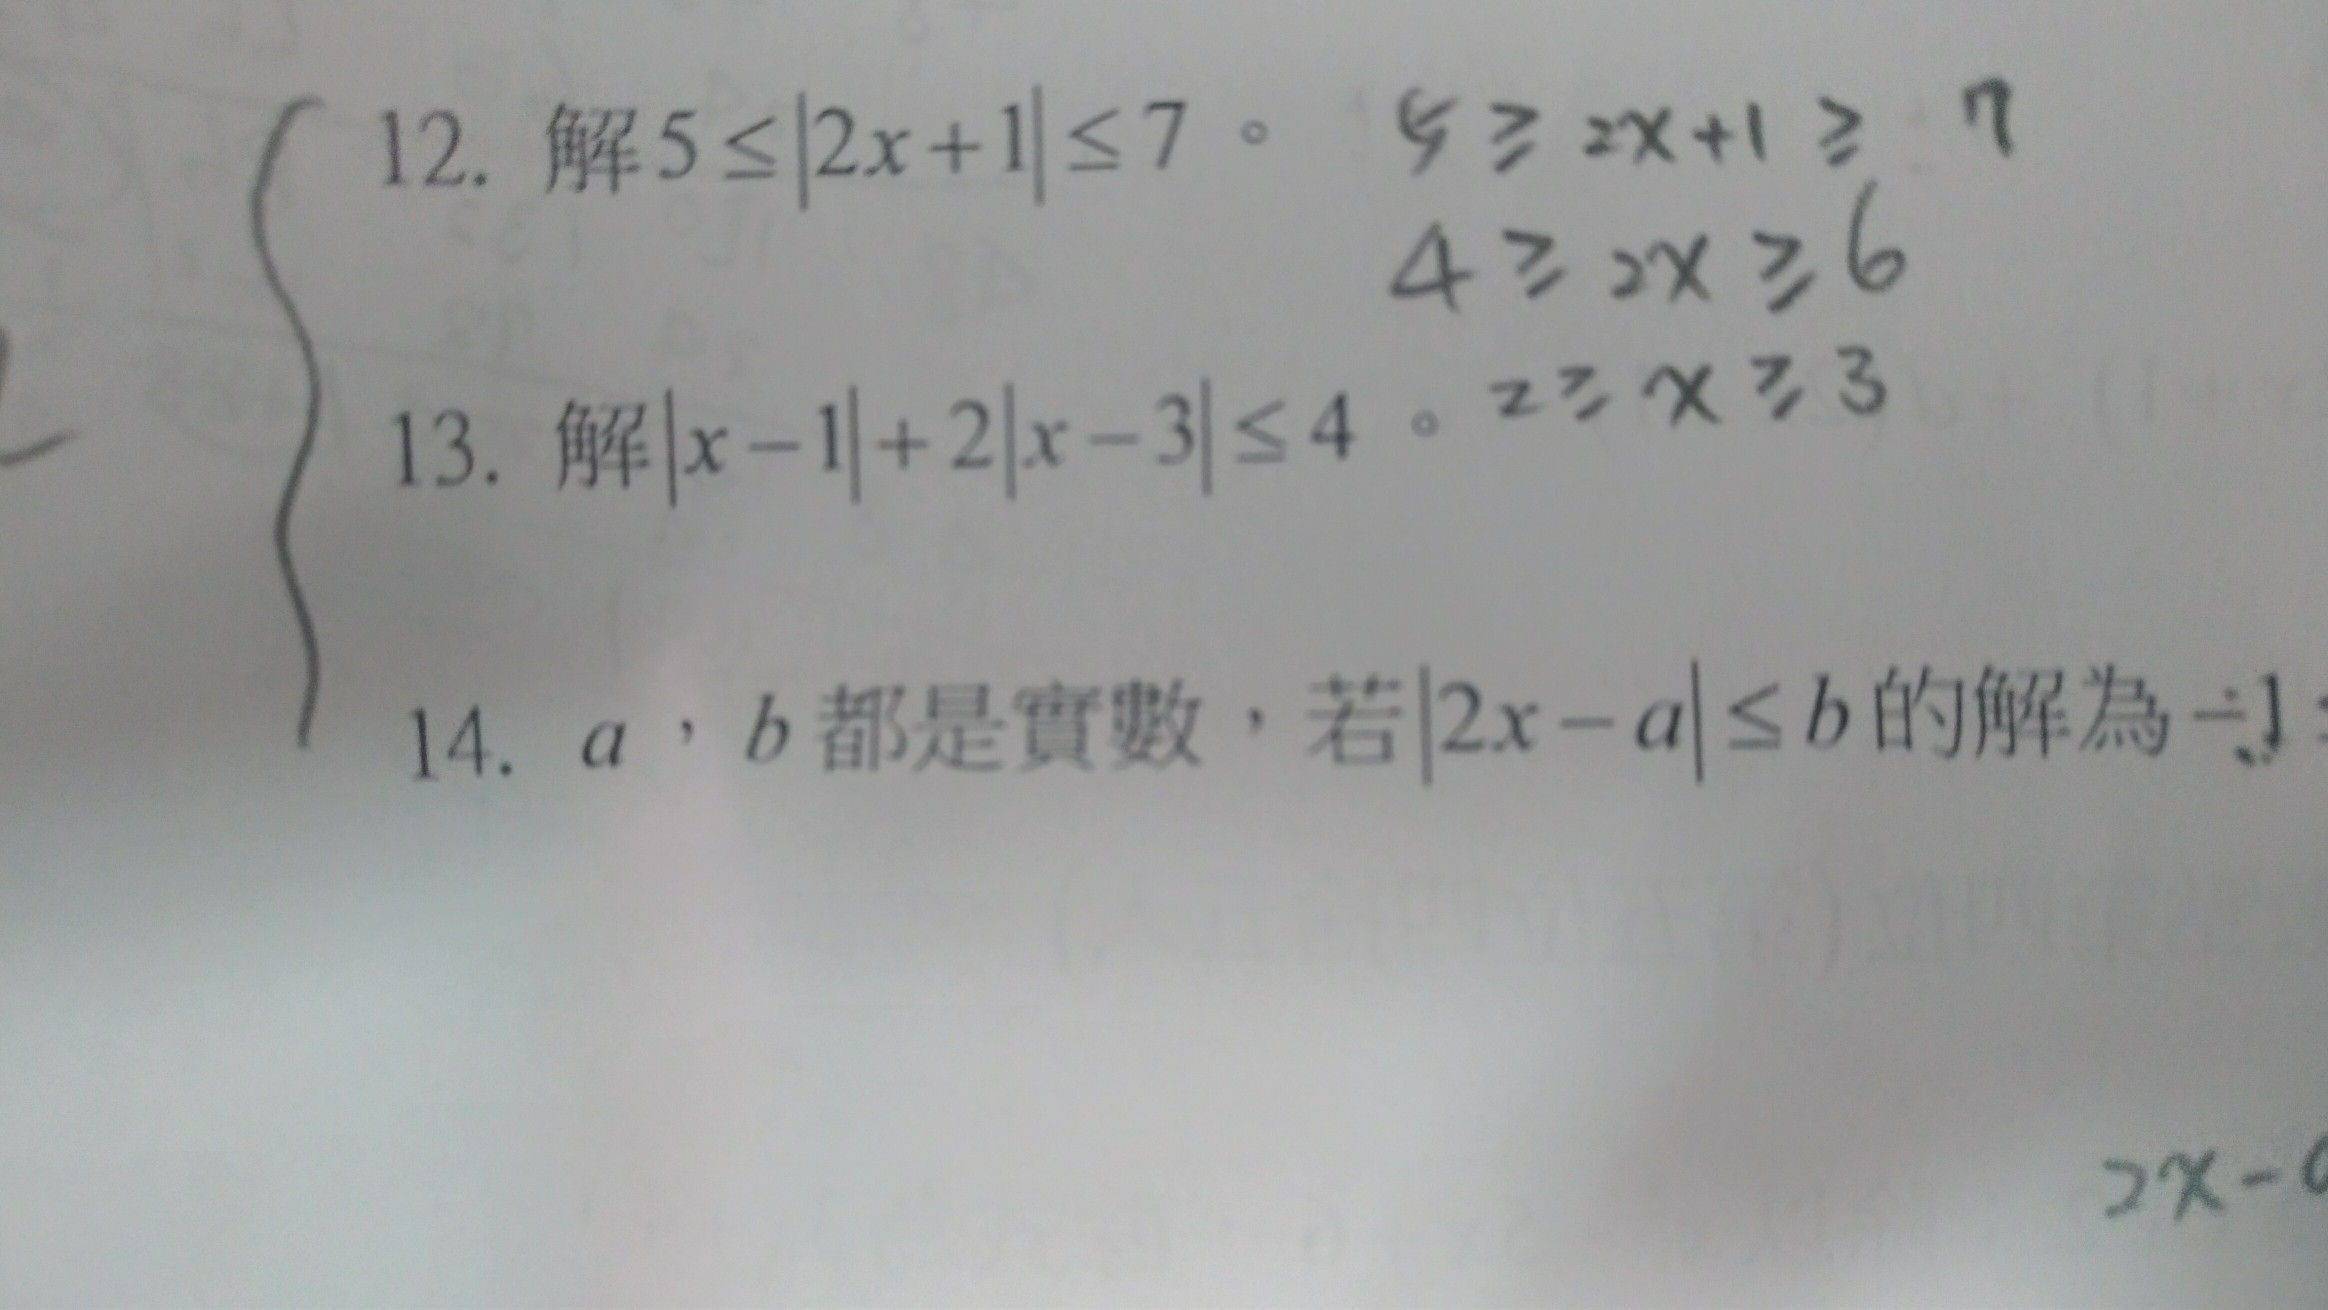 12. 解 5 ≤ |2x+1| ≤ 7 。 5 ≥ 2x+1 ≥ 7
4 ≥ 2x ≥ 6
13. 解 |x−1|+2|x−3| ≤ 4 。 2 ≥ x ≥ 3
14. a，b 都是實數，若 |2x−a| ≤ b 的解為 −1
2x-